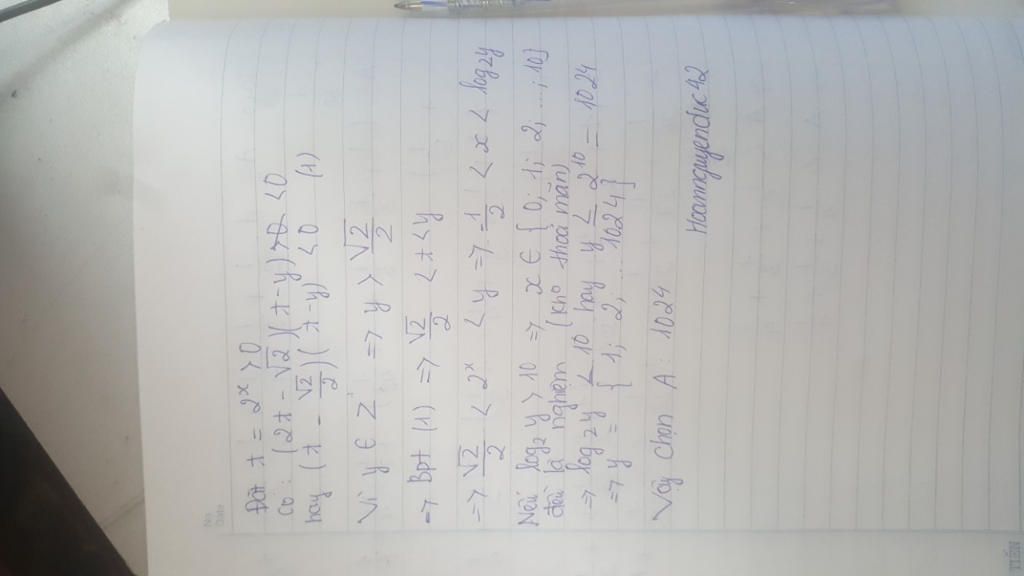 No.
Date
Đặt t = 2^x > 0
Có : (2t - √2)(t - y) > 0 < 0
hay (t - √2/2)(t - y) < 0 (1)
Vì y ∈ Z⁺ => y > √2/2
=> Bpt (1) => √2/2 < t < y
=> √2/2 < 2^x < y => -1/2 < x < log₂y
Nếu log₂y > 10 => x ∈ {0; 1; 2; ...; 10}
đều là nghiệm (khô thoả mãn)
=> log₂y ≤ 10 hay y ≤ 2^10 = 1024
=> y = {1; 2; ... 1024}
Vậy chọn A : 1024
Hoannguyenduc42
TIẾN